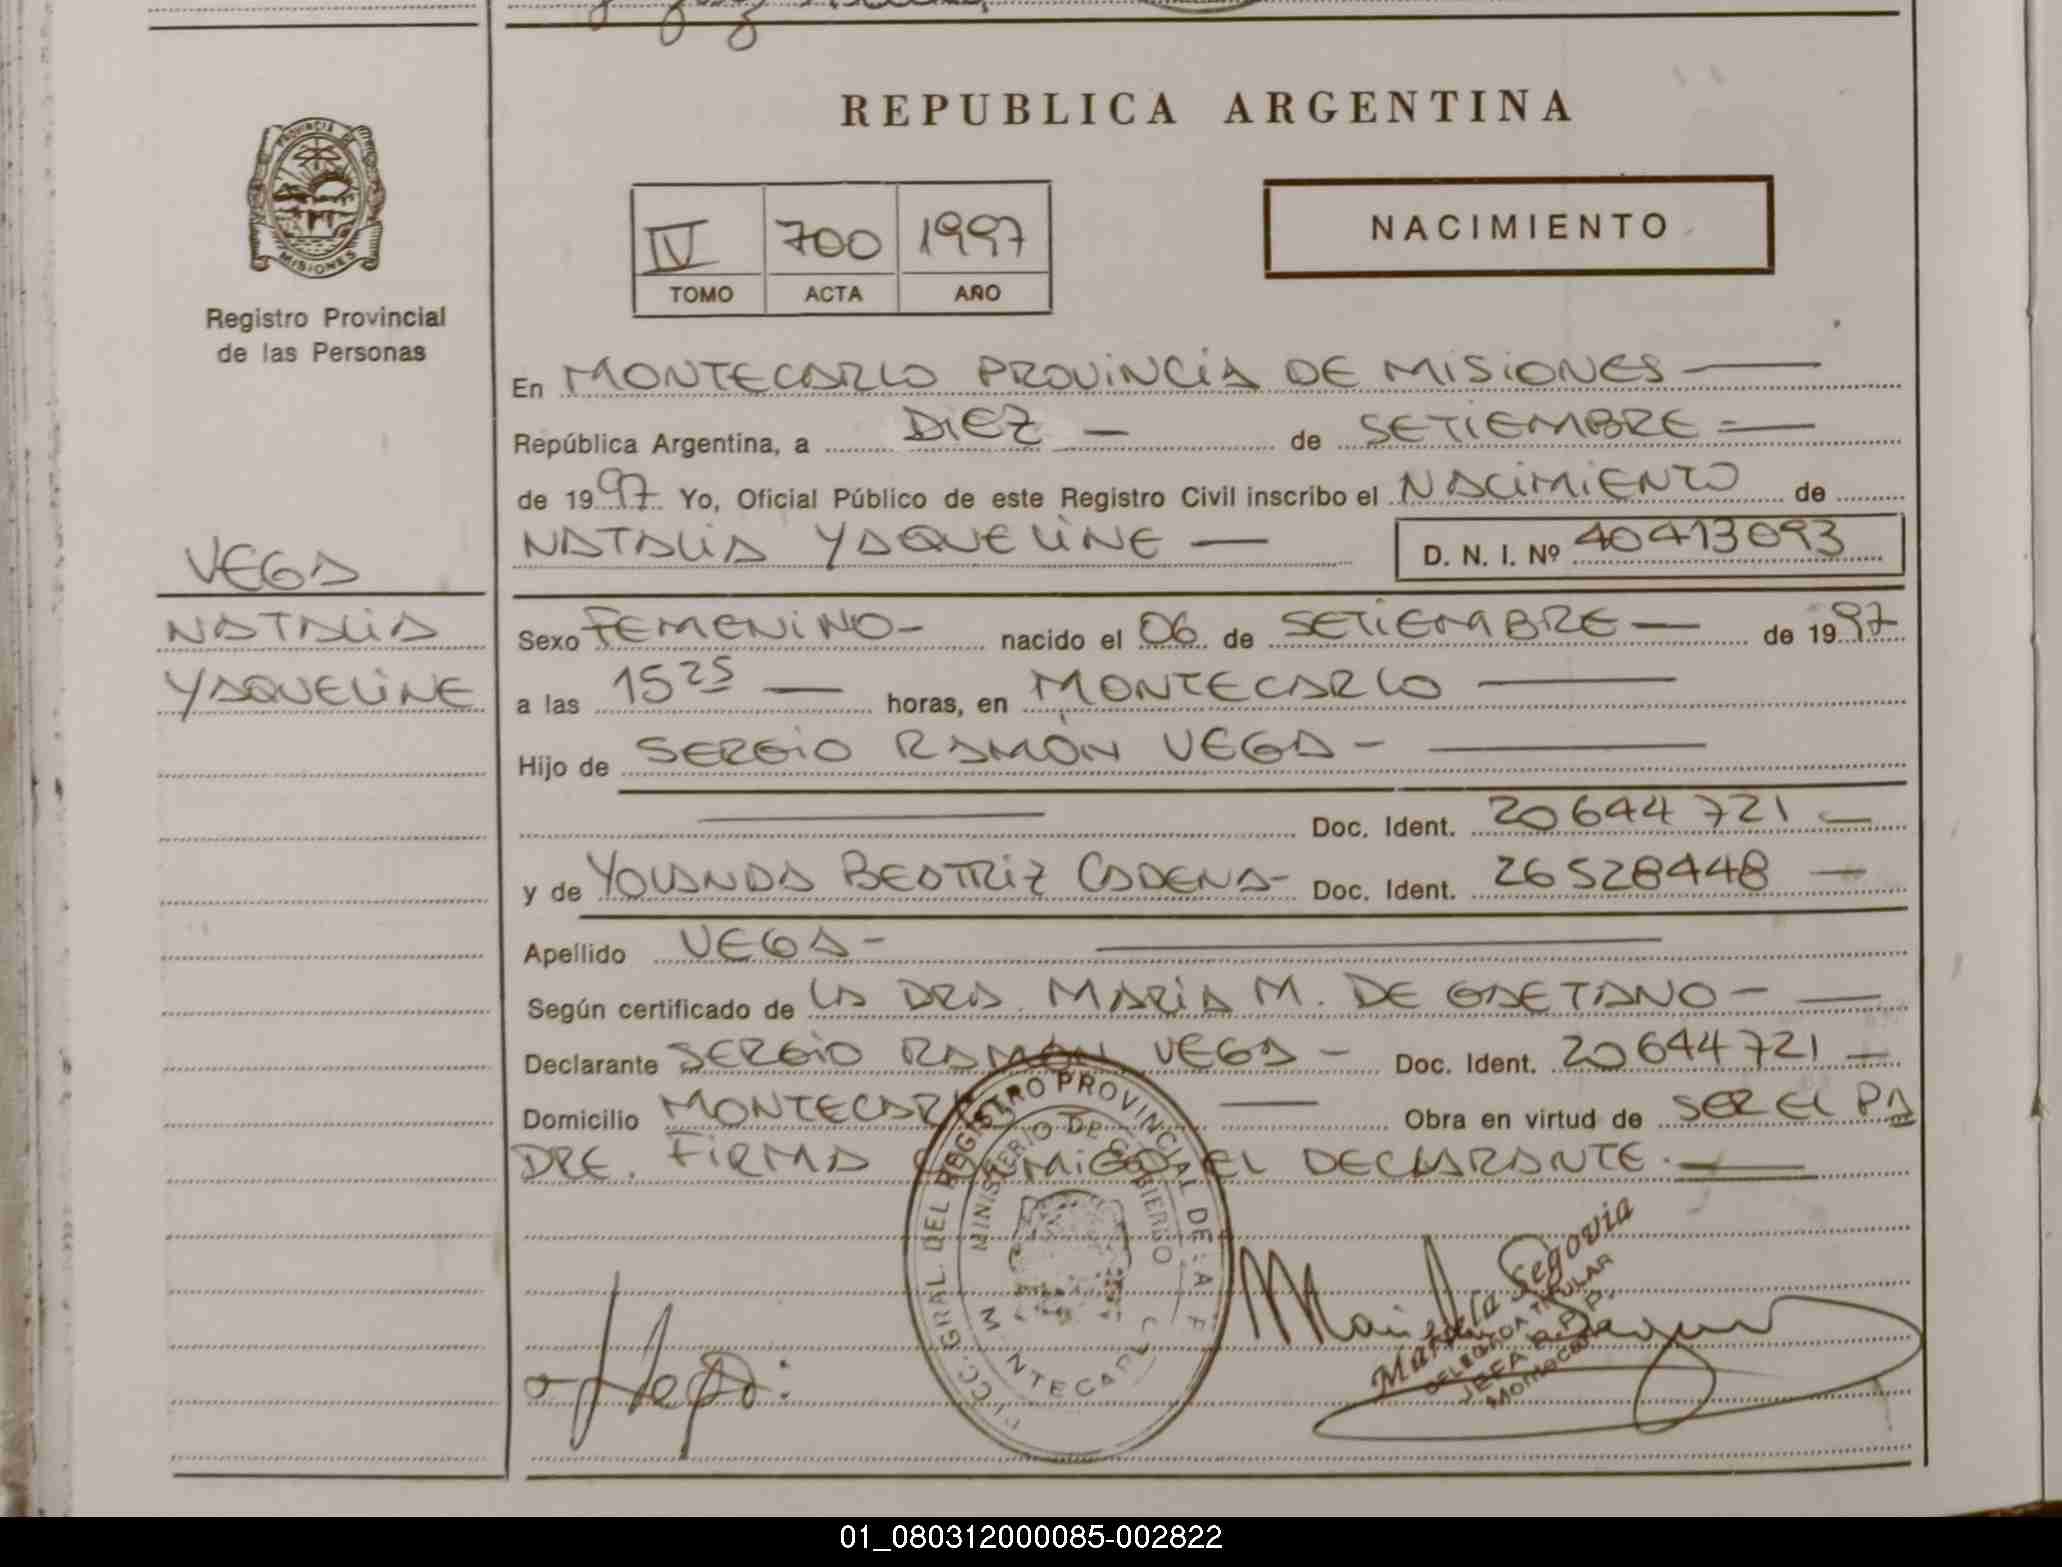 PROVINCIA DE
MISIONES
Registro Provincial
de las Personas
VEGA
NATALIA
YAQUELINE
REPUBLICA ARGENTINA
IV 700 1997
TOMO ACTA AÑO
NACIMIENTO
En MONTECARLO PROVINCIA DE MISIONES
República Argentina, a DIEZ — de SETIEMBRE —
de 1997 Yo, Oficial Público de este Registro Civil inscribo el NACIMIENTO de
NATALIA YAQUELINE — D. N. I. Nº 40413093
Sexo FEMENINO - nacido el 06 de SETIEMBRE — de 1997
a las 15 25 — horas, en MONTECARLO —
Hijo de SERGIO RAMÓN VEGA -
Doc. Ident. 20644721 —
y de YOLANDA BEATRIZ CADENA - Doc. Ident. 26528448 —
Apellido VEGA -
Según certificado de LA DRA. MARIA M. DE GAETANO -
Declarante SERGIO RAMÓN VEGA - Doc. Ident. 20644721 —
Domicilio MONTECARLO — Obra en virtud de SER EL PA
DRE. FIRMA CONMIGO EL DECLARANTE.
GRAL. DEL REGISTRO PROVINCIAL DE
MINISTERIO DE GOBIERNO
Mariela Segovia
DELEGADA TITULAR
JEFA R.P.P.
Montecarlo
01_080312000085-002822